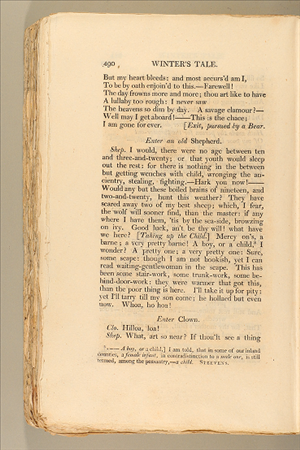 490 WINTER'S TALE.
But my heart bleeds: and most accurs'd am I,
To be by oath enjoin'd to this.—Farewell!
The day frowns more and more; thou art like to have
A lullaby too rough: I never saw
The heavens so dim by day. A savage clamour?—
Well may I get aboard!——This is the chace;
I am gone for ever. [Exit, pursued by a Bear.
Enter an old Shepherd.
Shep. I would, there were no age between ten
and three-and-twenty; or that youth would sleep
out the rest: for there is nothing in the between
but getting wenches with child, wronging the an-
cientry, stealing, fighting.—Hark you now!——
Would any but these boiled brains of nineteen, and
two-and-twenty, hunt this weather? They have
scared away two of my best sheep; which, I fear,
the wolf will sooner find, than the master: if any
where I have them, 'tis by the sea-side, browzing
on ivy. Good luck, an't be thy will! what have
we here? [Taking up the Child.] Mercy on's, a
barne; a very pretty barne! A boy, or a child, I
wonder? A pretty one; a very pretty one: Sure,
some scape: though I am not bookish, yet I can
read waiting-gentlewoman in the scape. This has
been some stair-work, some trunk-work, some be-
hind-door-work: they were warmer that got this,
than the poor thing is here. I'll take it up for pity:
yet I'll tarry till my son come; he hollaed but even
now. Whoa, ho hoa!
Enter Clown.
Clo. Hilloa, loa!
Shep. What, art so near? If thou'lt see a thing
—— A boy, or a child,] I am told, that in some of our inland
counties, a female infant, in contradistinction to a male one, is still
termed, among the peasantry,—a child. STEEVENS.